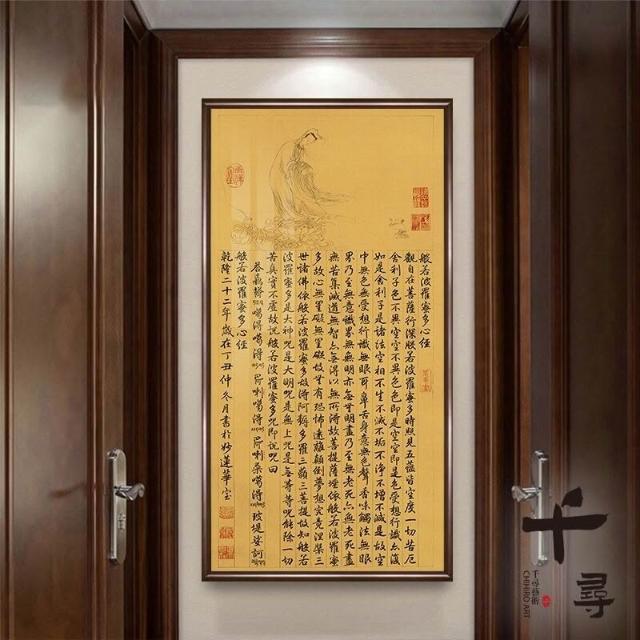 般若波羅蜜多心经
觀自在菩薩行深般若波羅蜜多時照見五蘊皆空度一切苦厄
舍利子色不異空空不異色色即是空空即是色受想行識亦復
如是舍利子是諸法空相不生不滅不垢不淨不增不減是故空
中無色無受想行識無眼耳鼻舌身意無色聲香味觸法無眼
界乃至無意識界無無明亦無無明盡乃至無老死亦無老死盡
無苦集滅道無智亦無得以無所得故菩提薩埵依般若波羅蜜
多故心無罣礙無罣礙故無有恐怖遠離顛倒夢想究竟涅槃三
世諸佛依般若波羅蜜多故得阿耨多羅三藐三菩提故知般若
波羅蜜多是大神咒是大明咒是無上咒是無等等咒能除一切
苦真實不虛故說般若波羅蜜多咒即說咒曰
噶得噶得 唎噶得 唎桑噶得 玻堤娑訶
般若波羅蜜多心经
乾隆二十二年歲在丁丑仲冬月書於妙蓮華室
千尋
千尋藝術
CHIHIRO ART